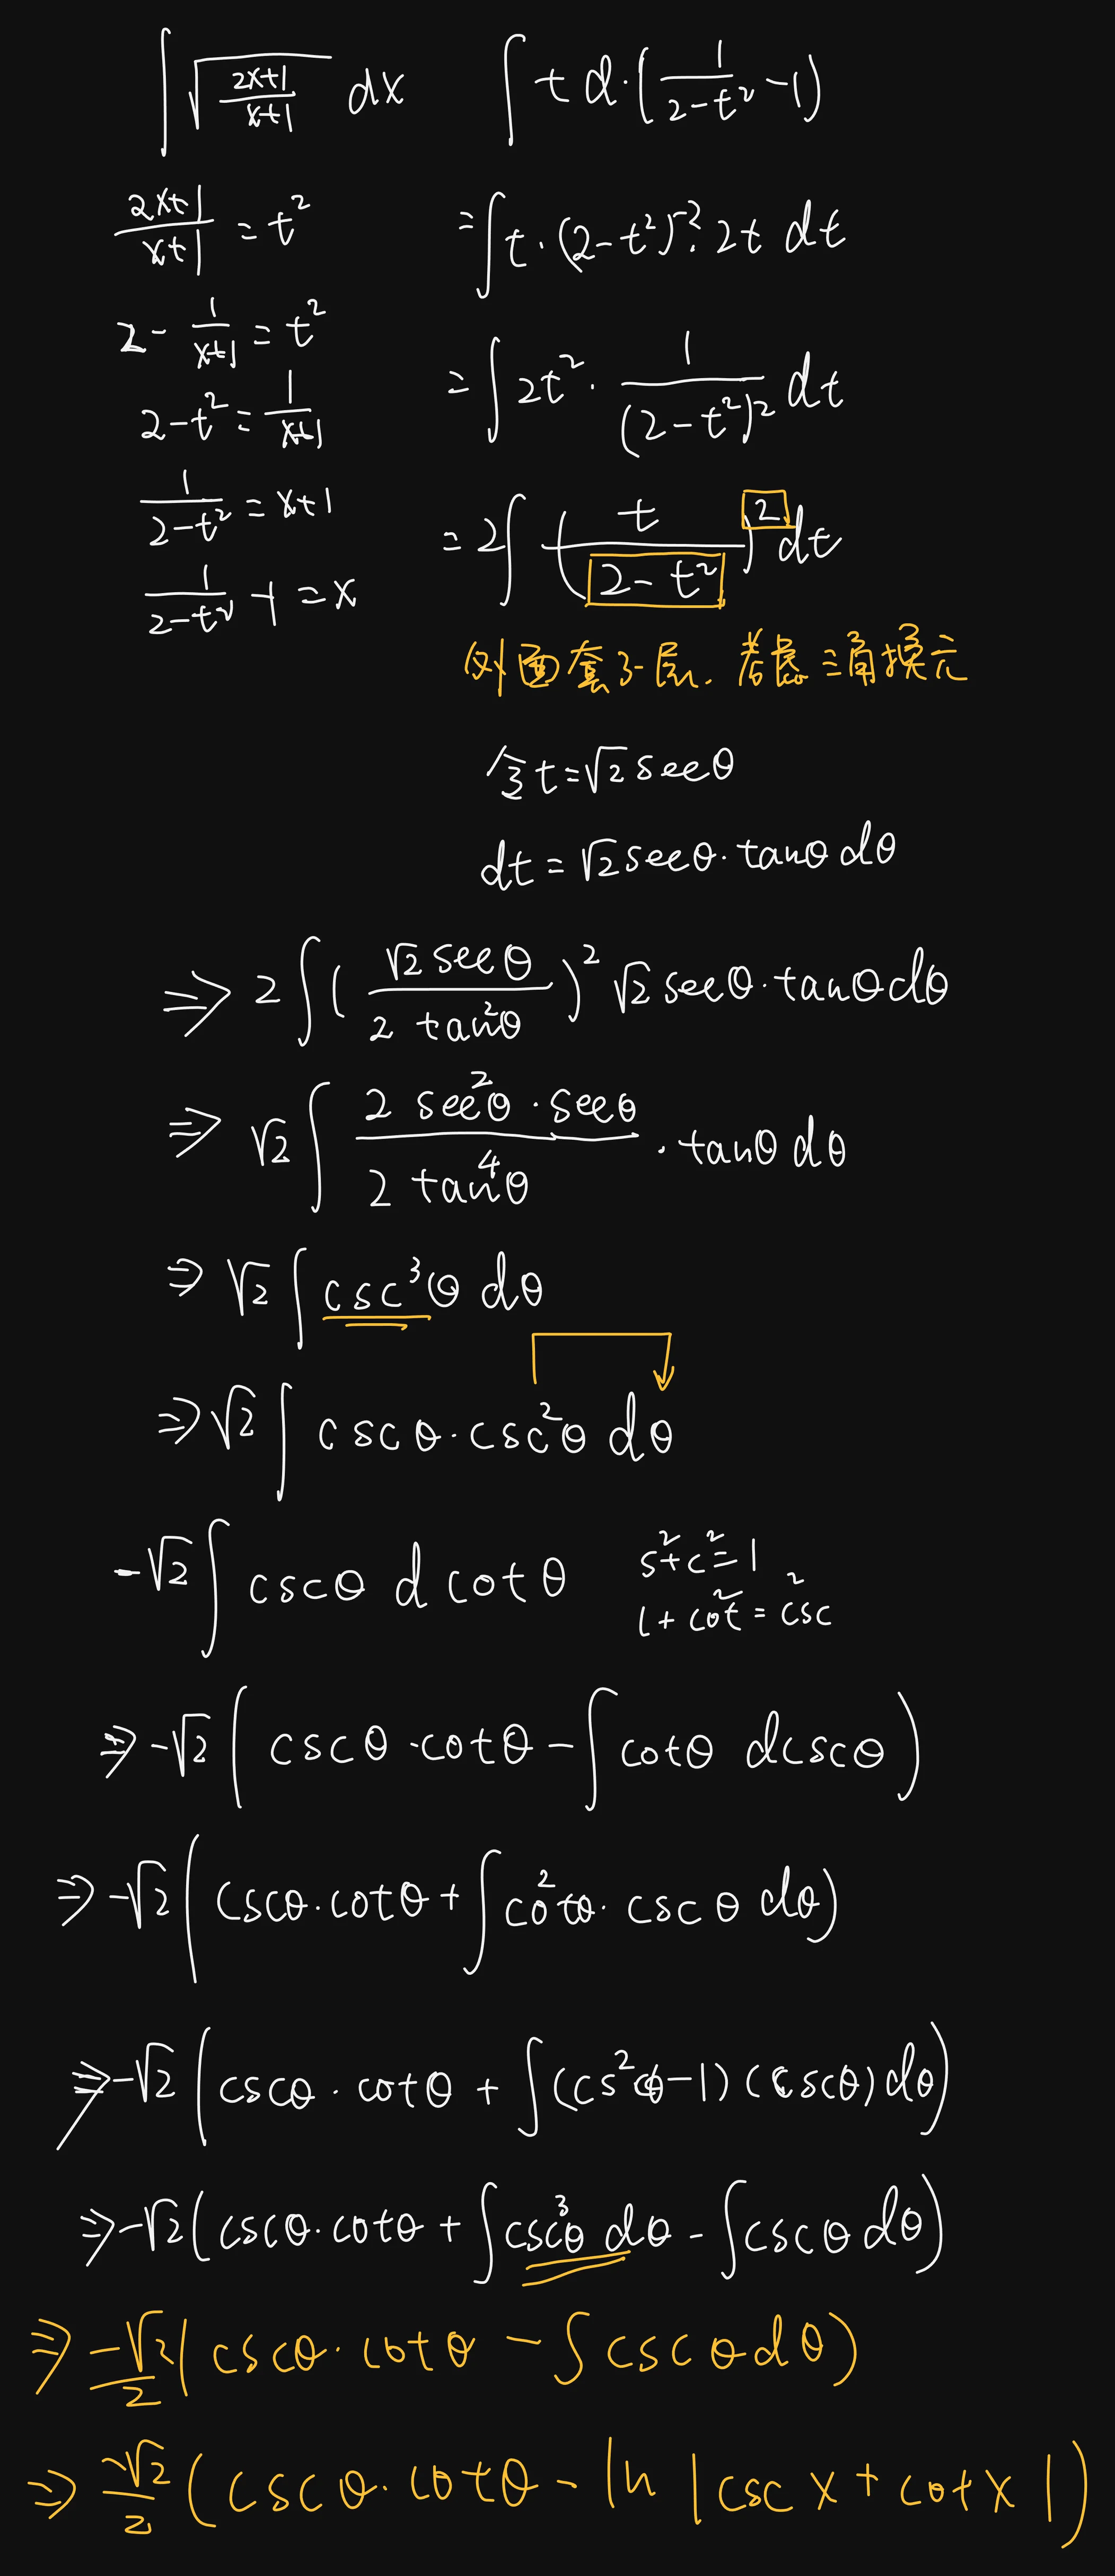 ∫ √((2x+1)/(x+1)) dx
(2x+1)/(x+1) = t²
2 - 1/(x+1) = t²
2-t² = 1/(x+1)
1/(2-t²) = x+1
1/(2-t²) - 1 = x
∫ t d·(1/(2-t²) - 1)
= ∫ t·(2-t²)⁻²·2t dt
= ∫ 2t²· 1/(2-t²)² dt
= 2∫ (t/(2-t²))² dt
外面套了一层. 考虑三角换元
令 t = √2 secθ
dt = √2 secθ·tanθ dθ
⇒ 2∫ (√2 secθ/(2 tan²θ))² √2 secθ·tanθ dθ
⇒ √2 ∫ (2 sec²θ·secθ)/(2 tan⁴θ) · tanθ dθ
⇒ √2 ∫ csc³θ dθ
⇒ √2 ∫ cscθ·csc²θ dθ
-√2 ∫ cscθ d cotθ
s²+c²=1
1+cot²=csc²
⇒ -√2 (cscθ·cotθ - ∫ cotθ dcscθ)
⇒ -√2 (cscθ·cotθ + ∫ cot²θ·cscθ dθ)
⇒ -√2 (cscθ·cotθ + ∫ (csc²θ-1)(cscθ) dθ)
⇒ -√2 (cscθ·cotθ + ∫ csc³θ dθ - ∫ cscθ dθ)
⇒ -√2/2 (cscθ·cotθ - ∫ cscθ dθ)
⇒ -√2/2 (cscθ·cotθ - ln |csc x + cot x|)